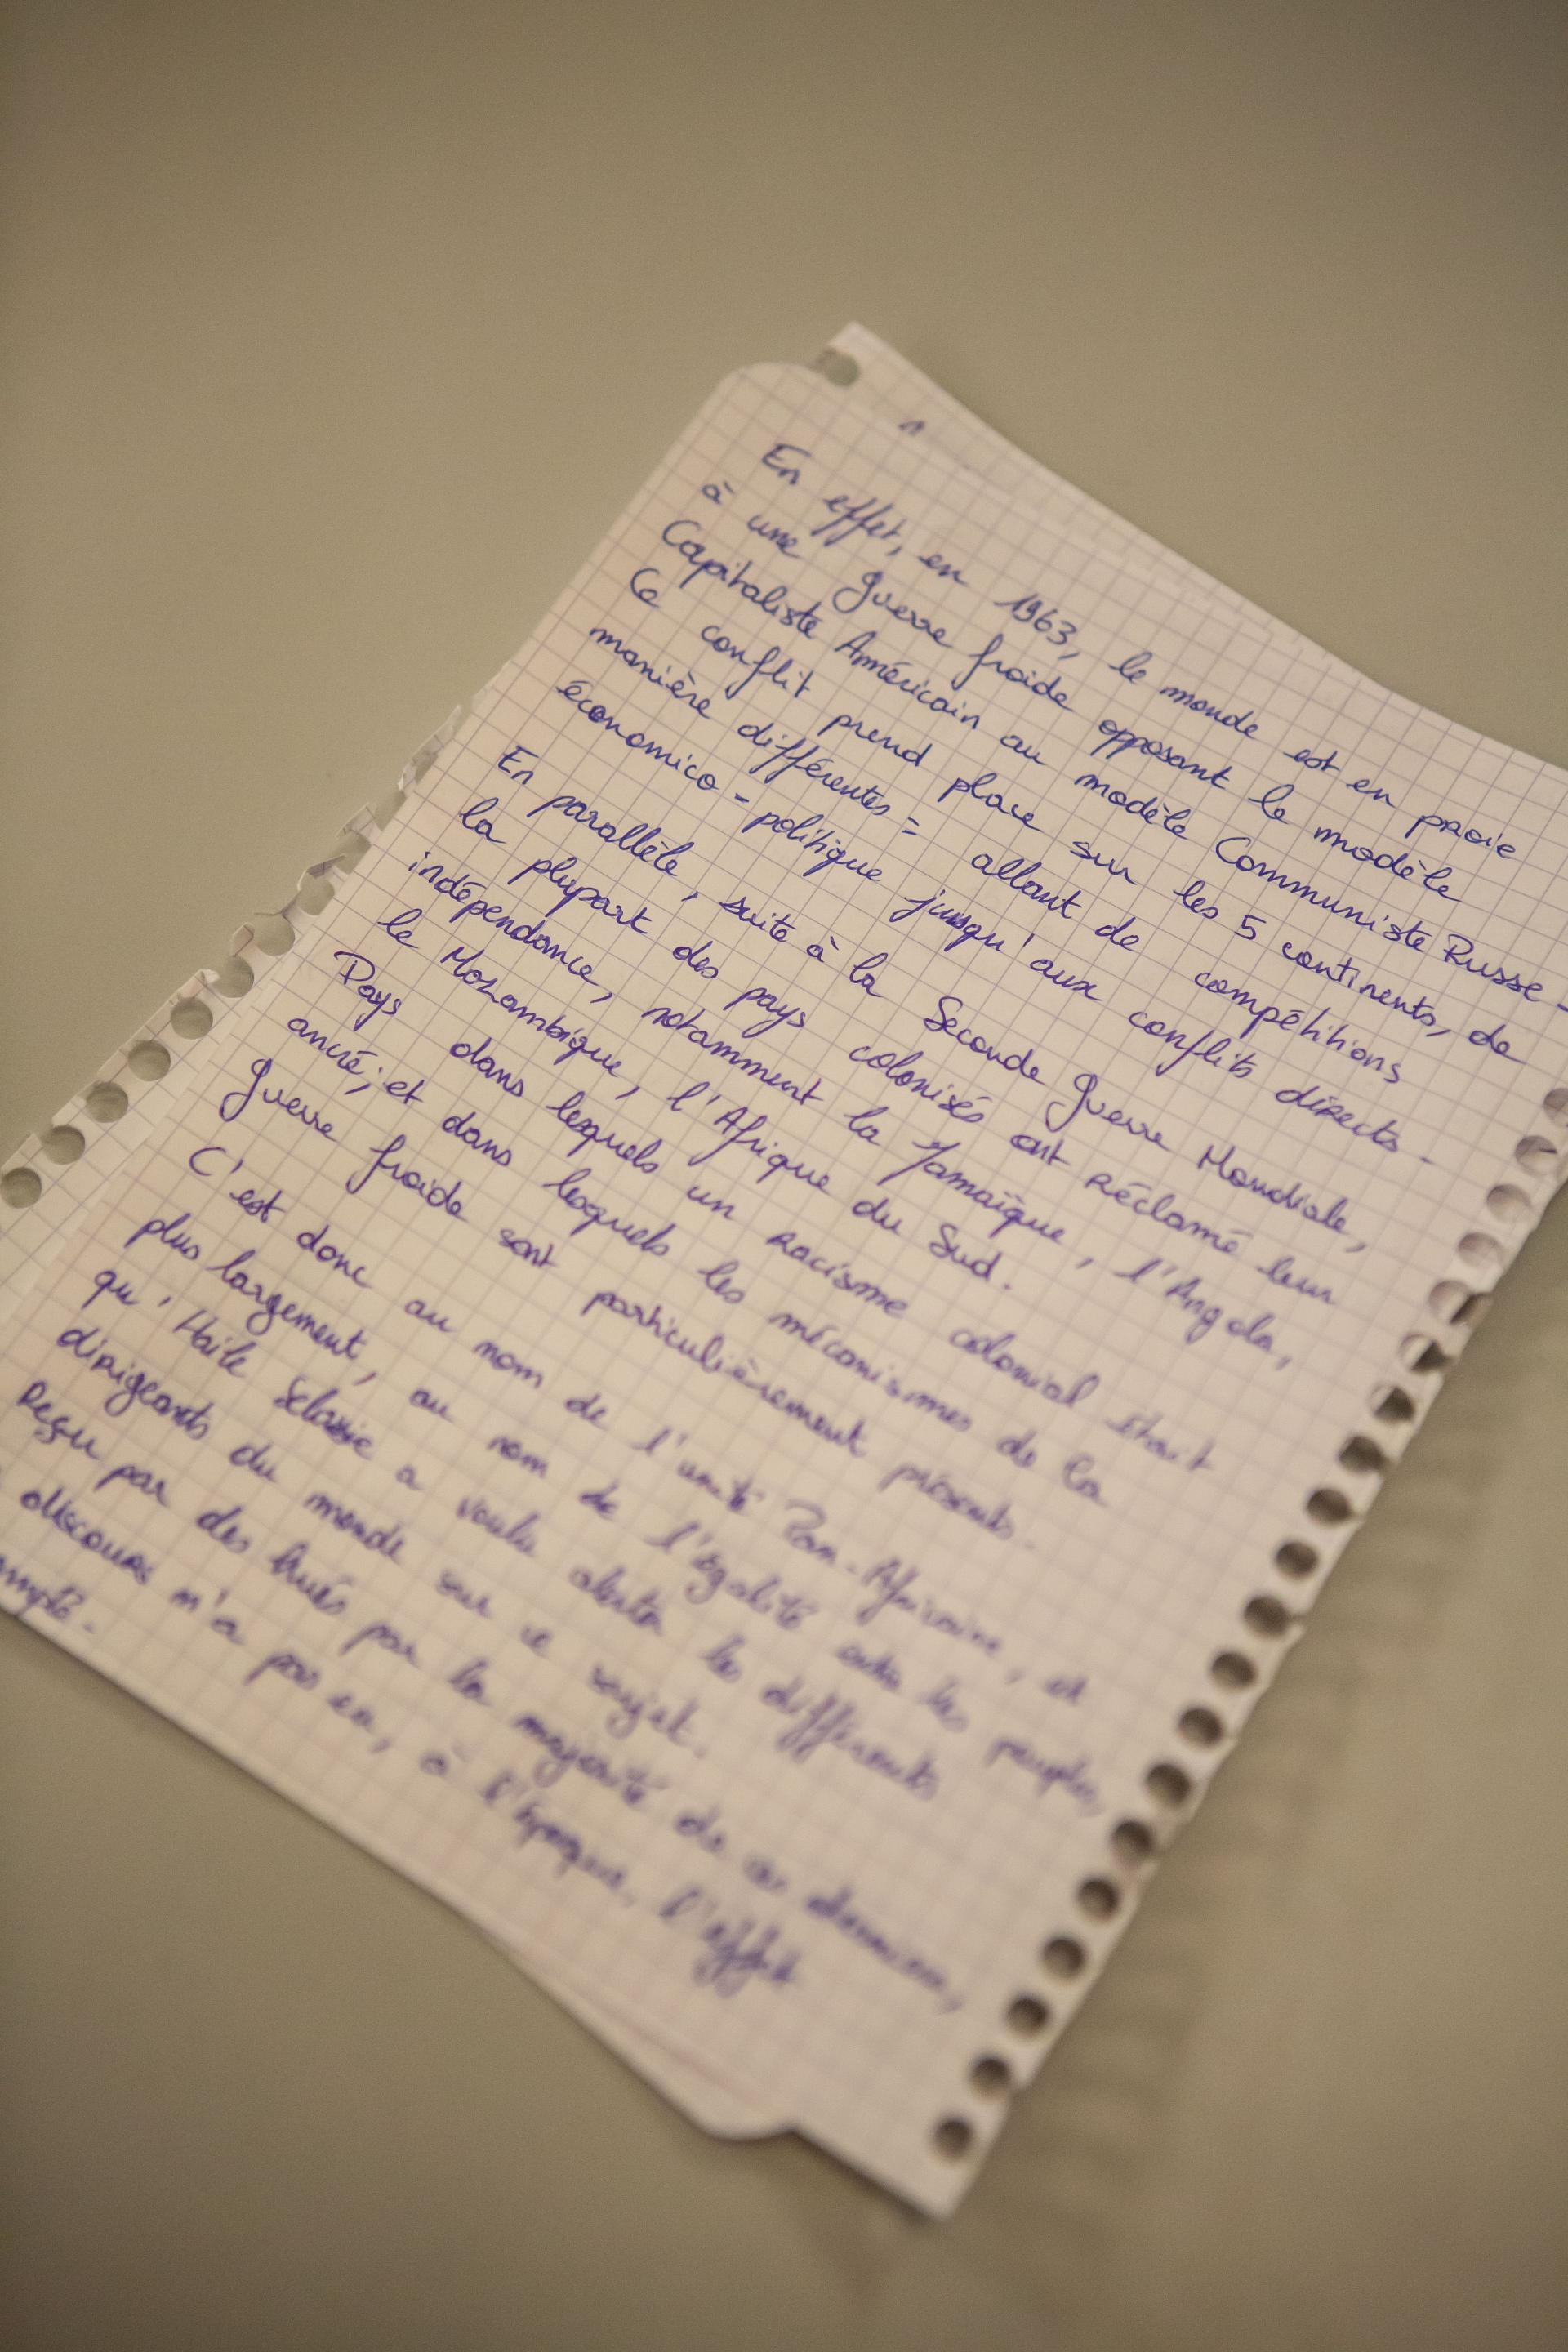 1
En effet, en 1963, le monde est en proie
à une guerre froide opposant le modèle
Capitaliste Américain au modèle Communiste Russe -
Ce conflit prend place sur les 5 continents, de
manière différentes = allant de compétitions
économico - politique jusqu'aux conflits directs -
En parallèle, suite à la Seconde Guerre Mondiale,
la plupart des pays colonisés ont réclamé leur
indépendance, notamment la Jamaïque, l'Angola,
le Mozambique, l'Afrique du Sud.
Pays dans lesquels un racisme colonial était
ancré; et dans lesquels les mécanismes de la
guerre froide sont particulièrement présents.
C'est donc au nom de l'unité Pan-Africaine, et
plus largement, au nom de l'égalité entre les peuples,
qu'Haile Selassie a voulu alerter les différents
dirigeants du monde sur ce sujet.
Reçu par des huées par la majorité de ces derniers,
discours n'a pas eu, à l'époque, l'effet